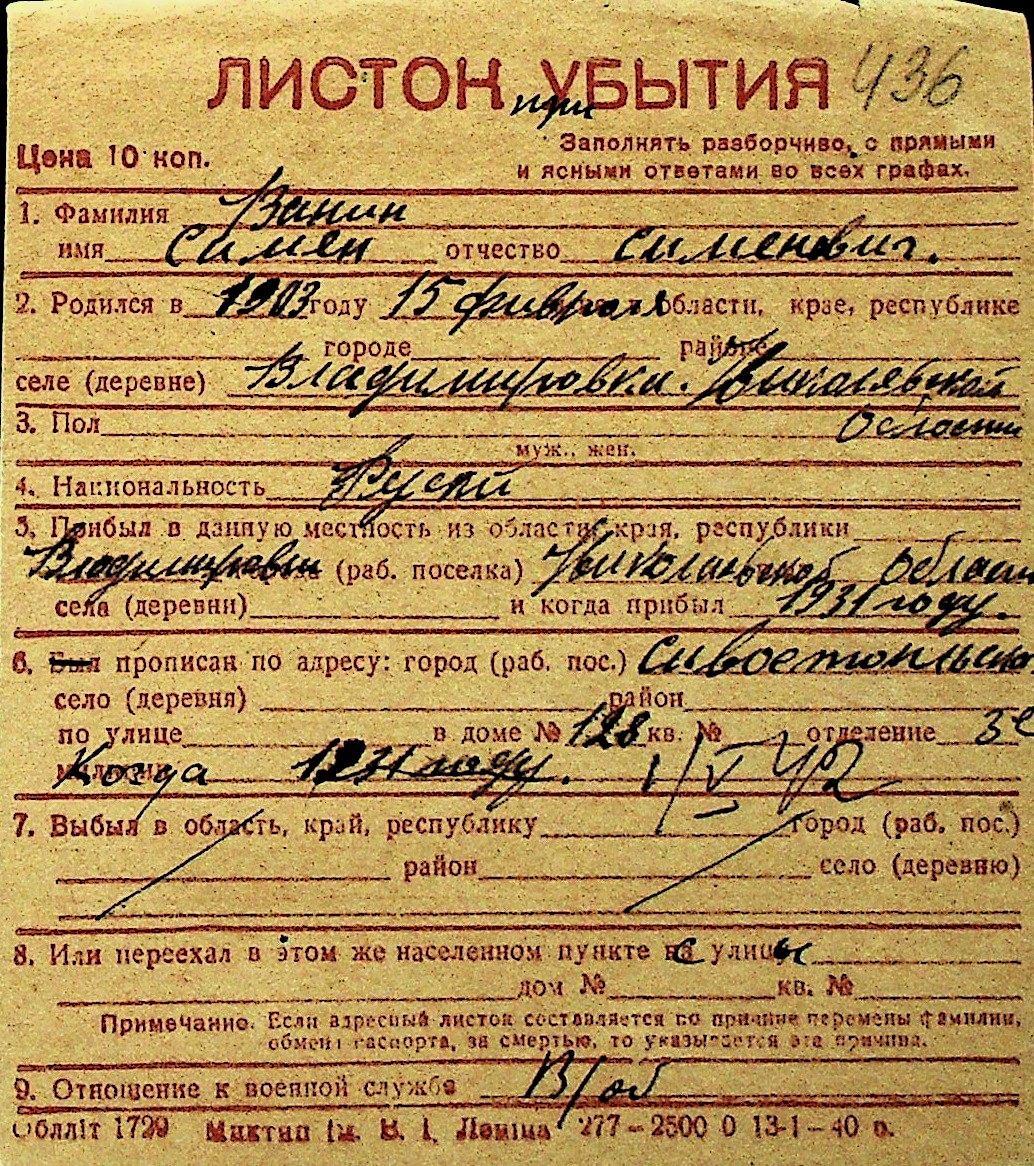 ЛИСТОК УБЫТИЯ 436
при
Цена 10 коп.
Заполнять разборчиво, с прямыми
и ясными ответами во всех графах.
1. Фамилия Ванин
имя Симен отчество Сименович.
2. Родился в 1903 году 15 фивраля области, крае, республике
городе районе
селе (деревне) Владимировки. Николаевской
3. Пол области
муж., жен.
4. Национальность Руский
5. Прибыл в данную местность из области, края, республики
Владимировки (раб. поселка) Николаевской области
села (деревни) и когда прибыл 1931 году.
6. Был прописан по адресу: город (раб. пос.)
село (деревня) район
по улице в доме № 128 кв. № отделение 3е
милиции Когда 1931 году. 1/V 42
7. Выбыл в область, край, республику город (раб. пос.)
район село (деревню)
8. Или переехал в этом же населенном пункте с улицы
дом № кв. №
Примечание. Если адресный листок составляется по причине перемены фамилии,
обмена паспорта, за смертью, то указывается эта причина.
9. Отношение к военной службе В/об
Обллiт 1729 Миктип iм. В. I. Ленiна 277—2500 0 13-1—40 р.